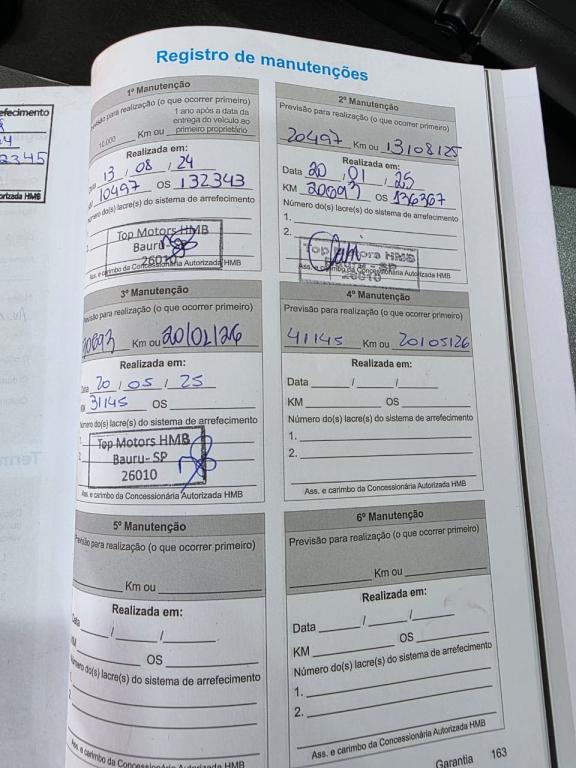 efecimento
2345
orizada HMB
Term
Registro de manutenções
1º Manutenção
Previsão para realização (o que ocorrer primeiro)
10.000 Km ou 1 ano após a data da
entrega do veículo ao
primeiro proprietário
Realizada em:
Data 13 / 08 / 24
KM 10497 OS 132343
Número do(s) lacre(s) do sistema de arrefecimento
1.
2.
Top Motors HMB
Bauru
26010
Ass. e carimbo da Concessionária Autorizada HMB
2º Manutenção
Previsão para realização (o que ocorrer primeiro)
20497 Km ou 13/08/25
Realizada em:
Data 20 / 01 / 25
KM 20693 OS 136367
Número do(s) lacre(s) do sistema de arrefecimento
1.
2.
Top Motors HMB
- SP
26010
Ass. e carimbo da Concessionária Autorizada HMB
3º Manutenção
Previsão para realização (o que ocorrer primeiro)
Km ou 20/01/26
Realizada em:
Data 20 / 05 / 25
KM 31145 OS
Número do(s) lacre(s) do sistema de arrefecimento
1.
2.
Top Motors HMB
Bauru- SP
26010
Ass. e carimbo da Concessionária Autorizada HMB
4º Manutenção
Previsão para realização (o que ocorrer primeiro)
41145 Km ou 20/05/26
Realizada em:
Data / /
KM OS
Número do(s) lacre(s) do sistema de arrefecimento
1.
2.
Ass. e carimbo da Concessionária Autorizada HMB
5º Manutenção
Previsão para realização (o que ocorrer primeiro)
Km ou
Realizada em:
Data / /
KM OS
Número do(s) lacre(s) do sistema de arrefecimento
1.
2.
Ass. e carimbo da Concessionária Autorizada HMB
6º Manutenção
Previsão para realização (o que ocorrer primeiro)
Km ou
Realizada em:
Data / /
KM OS
Número do(s) lacre(s) do sistema de arrefecimento
1.
2.
Ass. e carimbo da Concessionária Autorizada HMB
Garantia 163